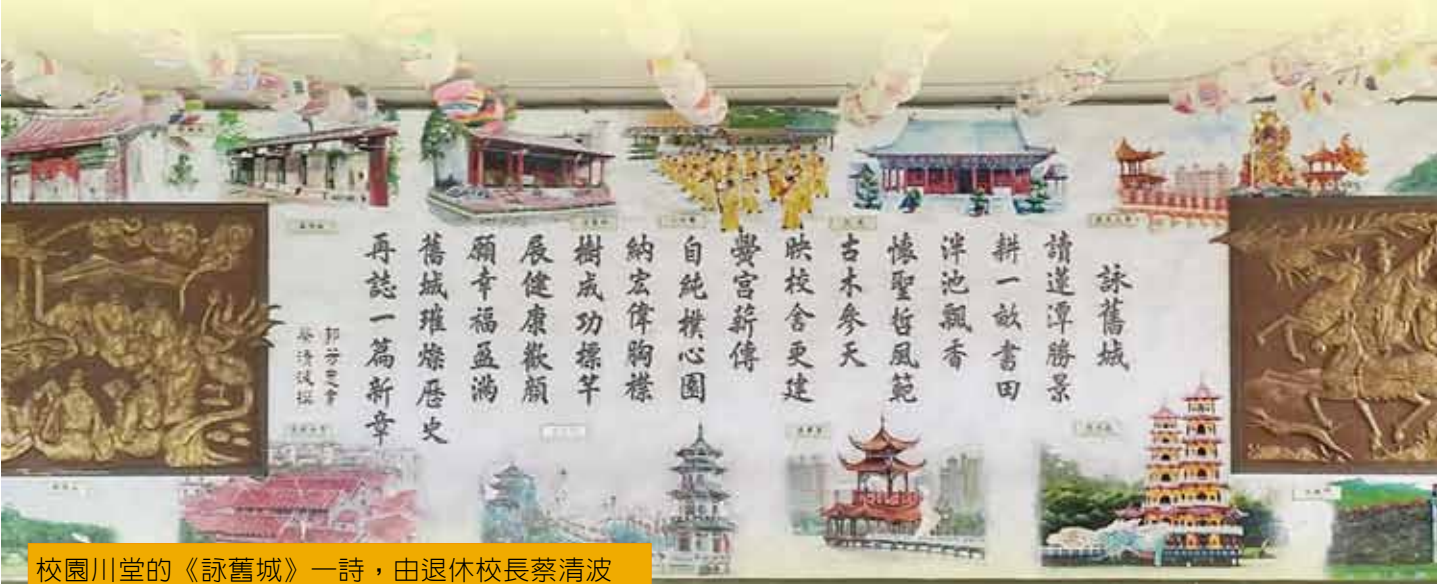 詠舊城
讀蓮潭勝景
耕一畝書田
泮池飄香
懷聖哲風範
古木參天
映校舍更建
黌宮薪傳
自純樸心園
納宏偉胸襟
樹成功標竿
展健康歡顏
願幸福盈滿
舊城璀燦歷史
再誌一篇新章
郭芳忠書
蔡清波撰
校園川堂的《詠舊城》一詩，由退休校長蔡清波